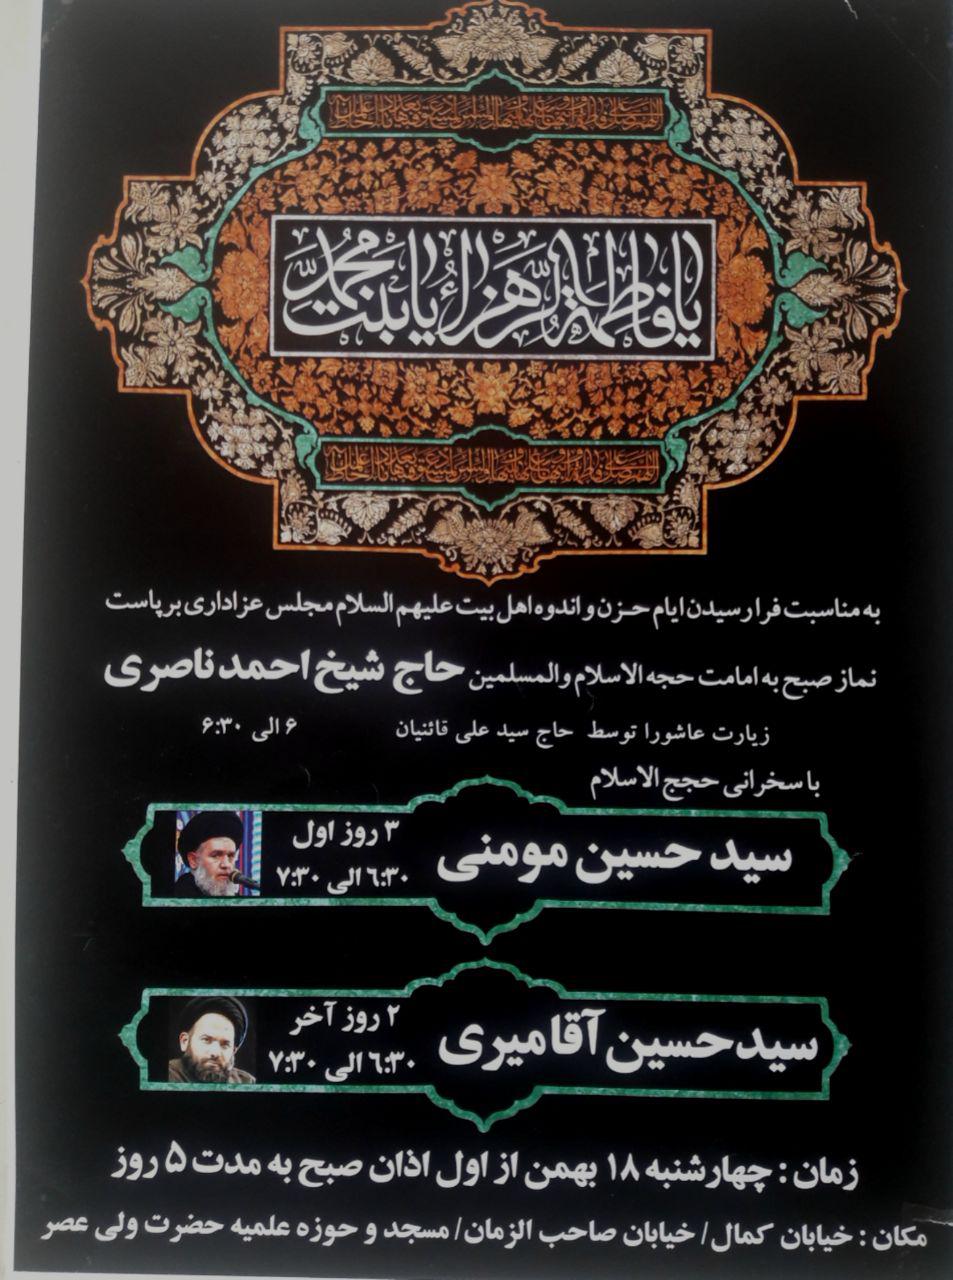 یا فاطمة الزهراء یا بنت محمد
به مناسبت فرا رسیدن ایام حزن و اندوه اهل بیت علیهم السلام مجلس عزاداری برپاست
نماز صبح به امامت حجه الاسلام والمسلمین حاج شیخ احمد ناصری
زیارت عاشورا توسط حاج سید علی قائنیان ۶ الی ۶:۳۰
با سخرانی حجج الاسلام
سید حسین مومنی
۳ روز اول
۶:۳۰ الی ۷:۳۰
سید حسین آقامیری
۲ روز آخر
۶:۳۰ الی ۷:۳۰
زمان : چهارشنبه ۱۸ بهمن از اول اذان صبح به مدت ۵ روز
مکان : خیابان کمال/ خیابان صاحب الزمان/ مسجد و حوزه علمیه حضرت ولی عصر